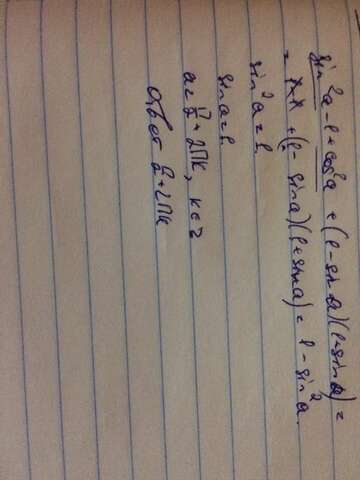 sin²a - 1 + cos²a + (1 - sin a)(1 + sin a) =
= 1 - 1 + (1 - sin a)(1 + sin a) = 1 - sin²a.
sin²a = 1.
sin a = 1.
a = π/2 + 2πk, k ∈ z
Ответ π/2 + 2πk